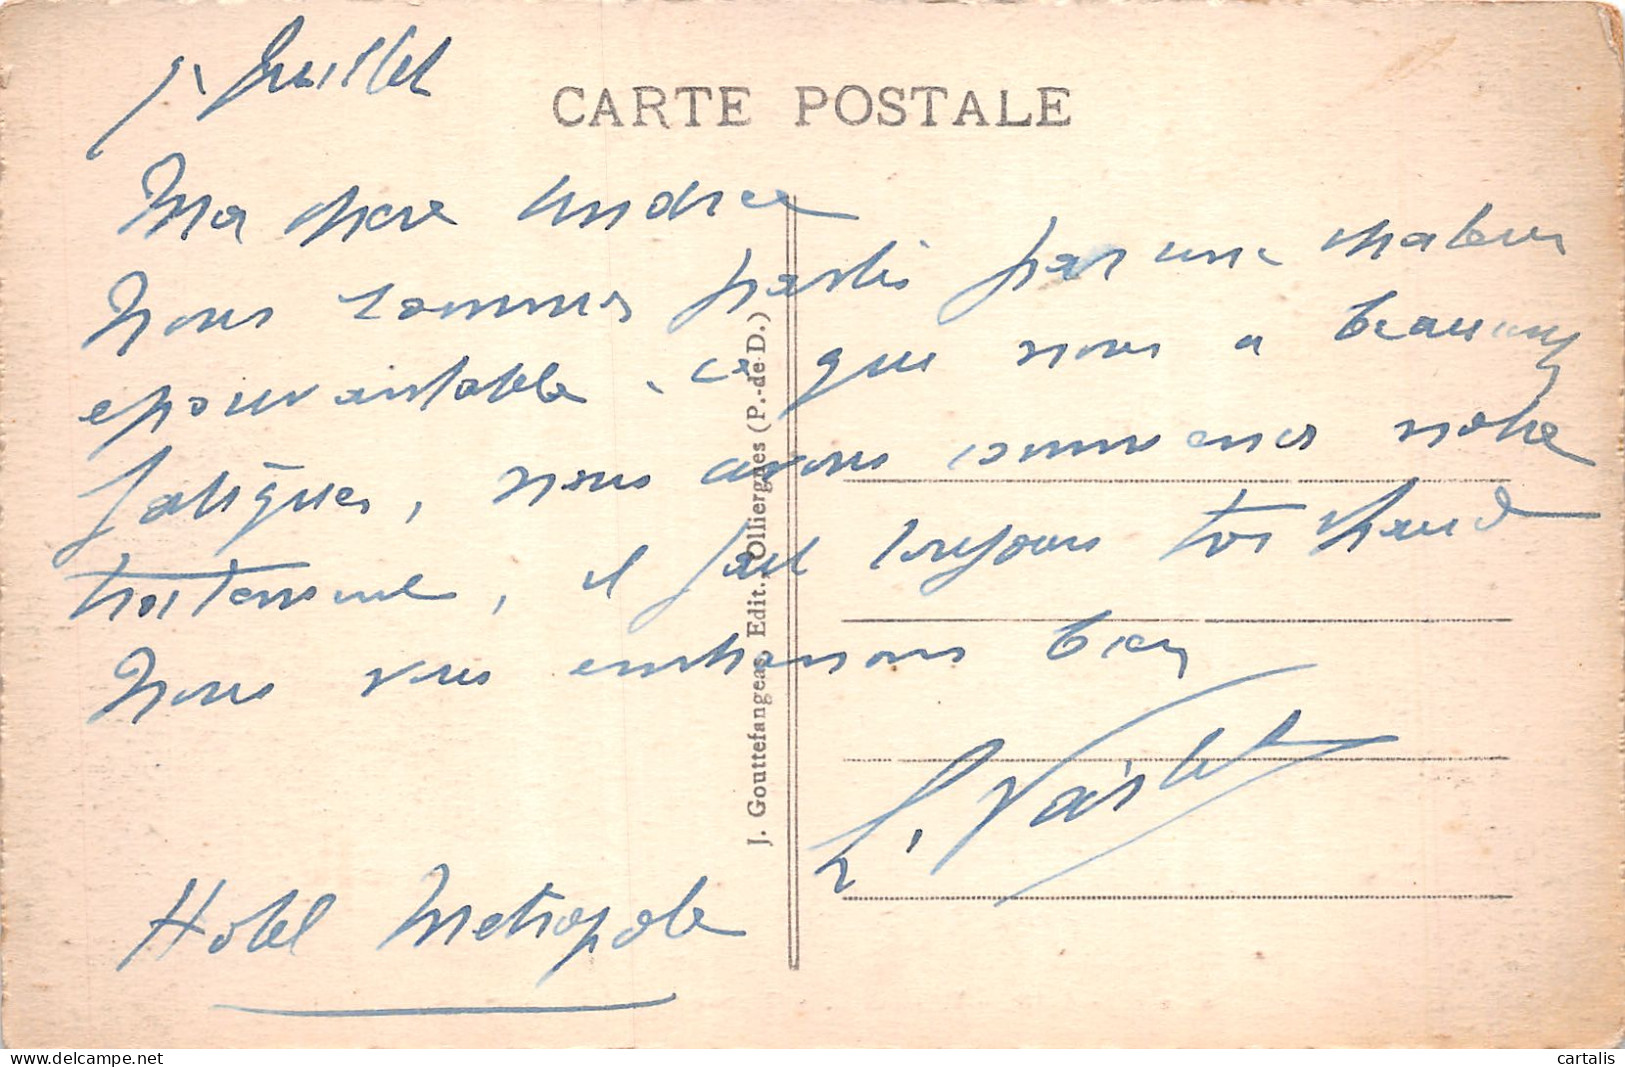 Juillet
CARTE POSTALE
Ma chere Andree
Nous sommes partis par une chaleur
epouvantable. ce que nous a beaucoup
fatigues, nous avons commences notre
traitement, il fait toujours tres chaud
Nous vous embrassons bien
Hotel Metropole
J. Gouttefangeas, Edit., Olliergues (P.-de-D.)
delcampe.net
cartalis